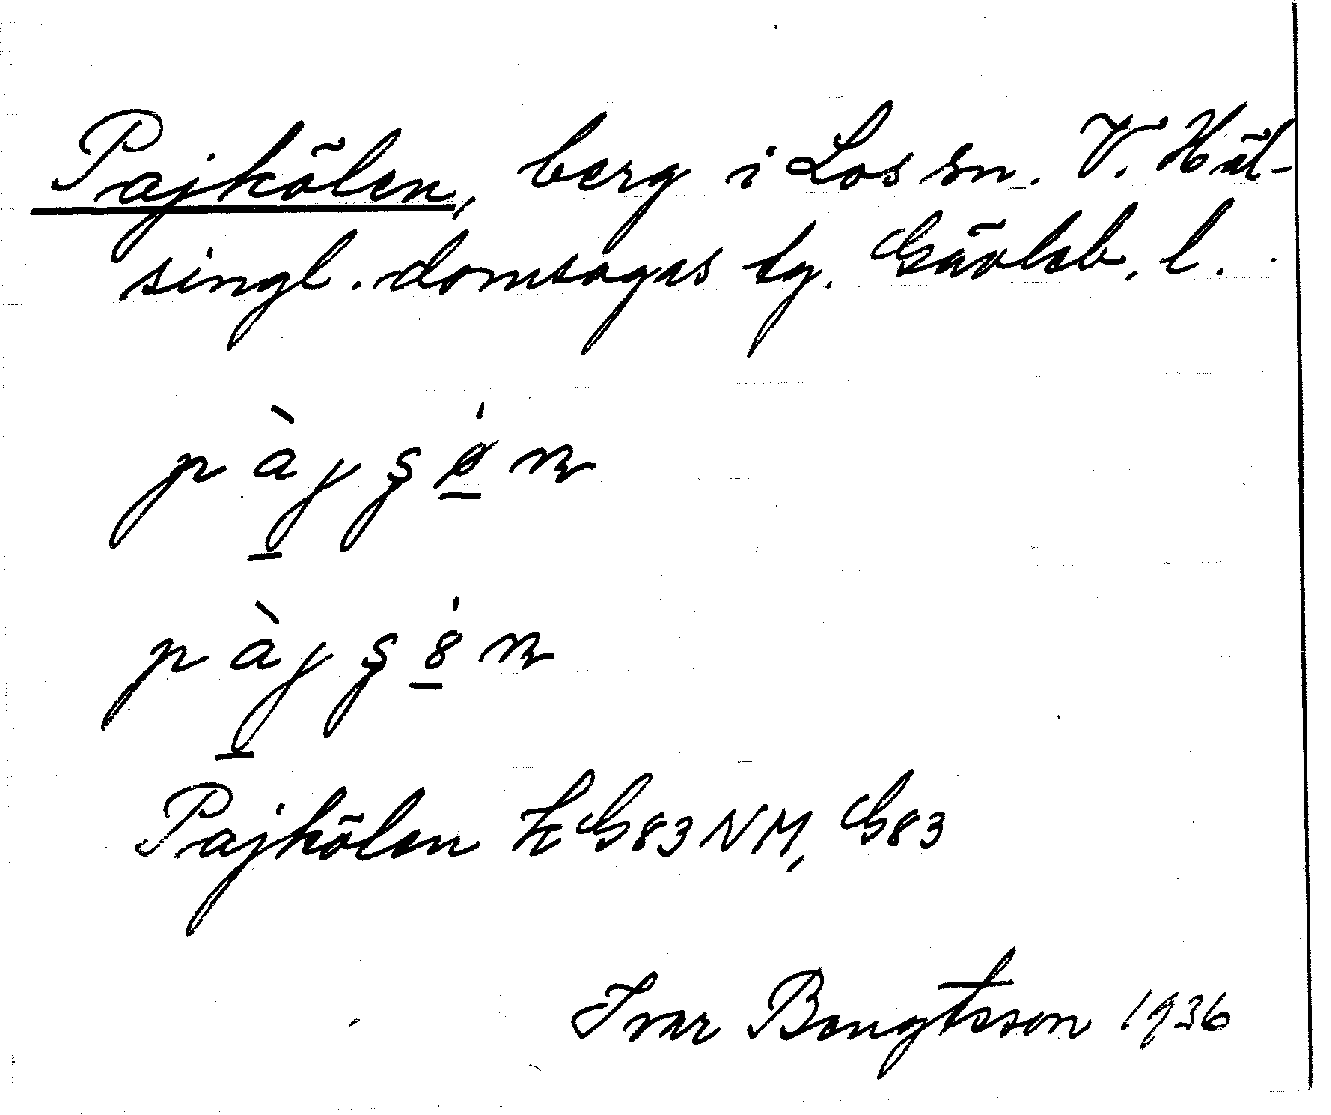 Pajkölen, berg i Los sn. V. Häl-
singl. domsagas tg. Gävleb. l.
pàjş
pàjş
Pajkölen G83 NM, G83
Ivar Bengtsson 1936